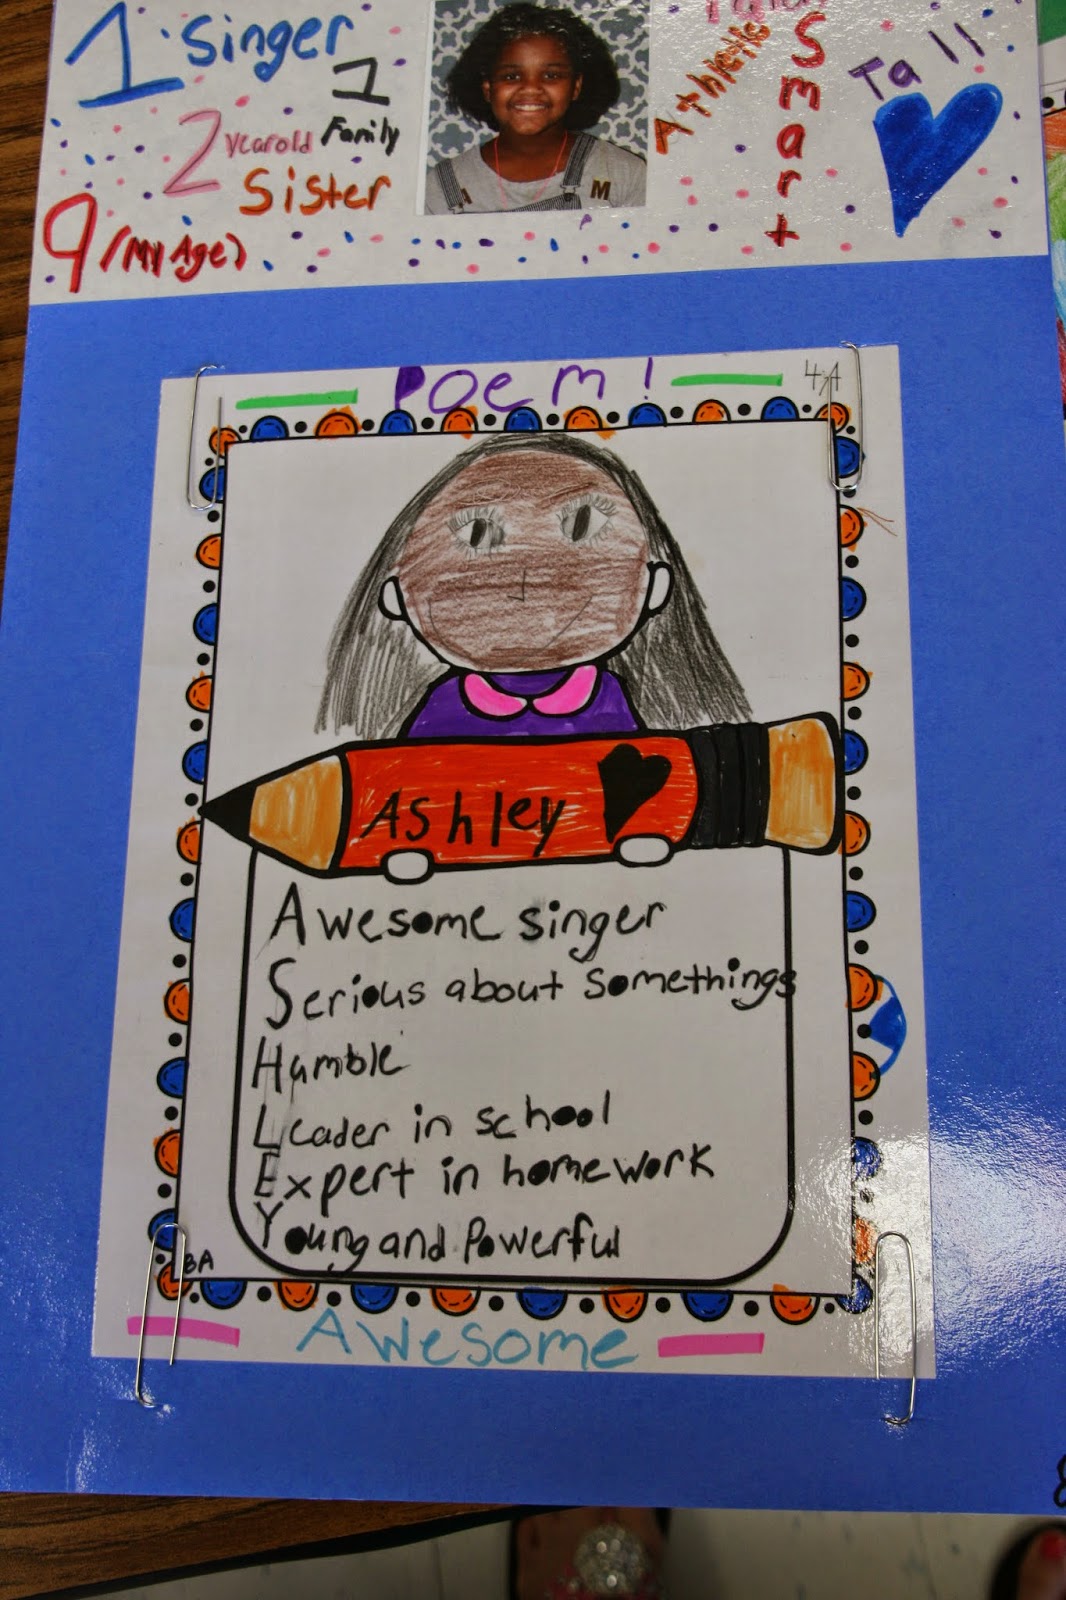 1 singer
1
Family
2 year old
Sister
9 (My Age)
Athletic
Smart
Tall
M
Poem!
4A
Ashley
Awesome singer
Serious about somethings
Humble
Leader in school
Expert in homework
Young and Powerful
BA
Awesome